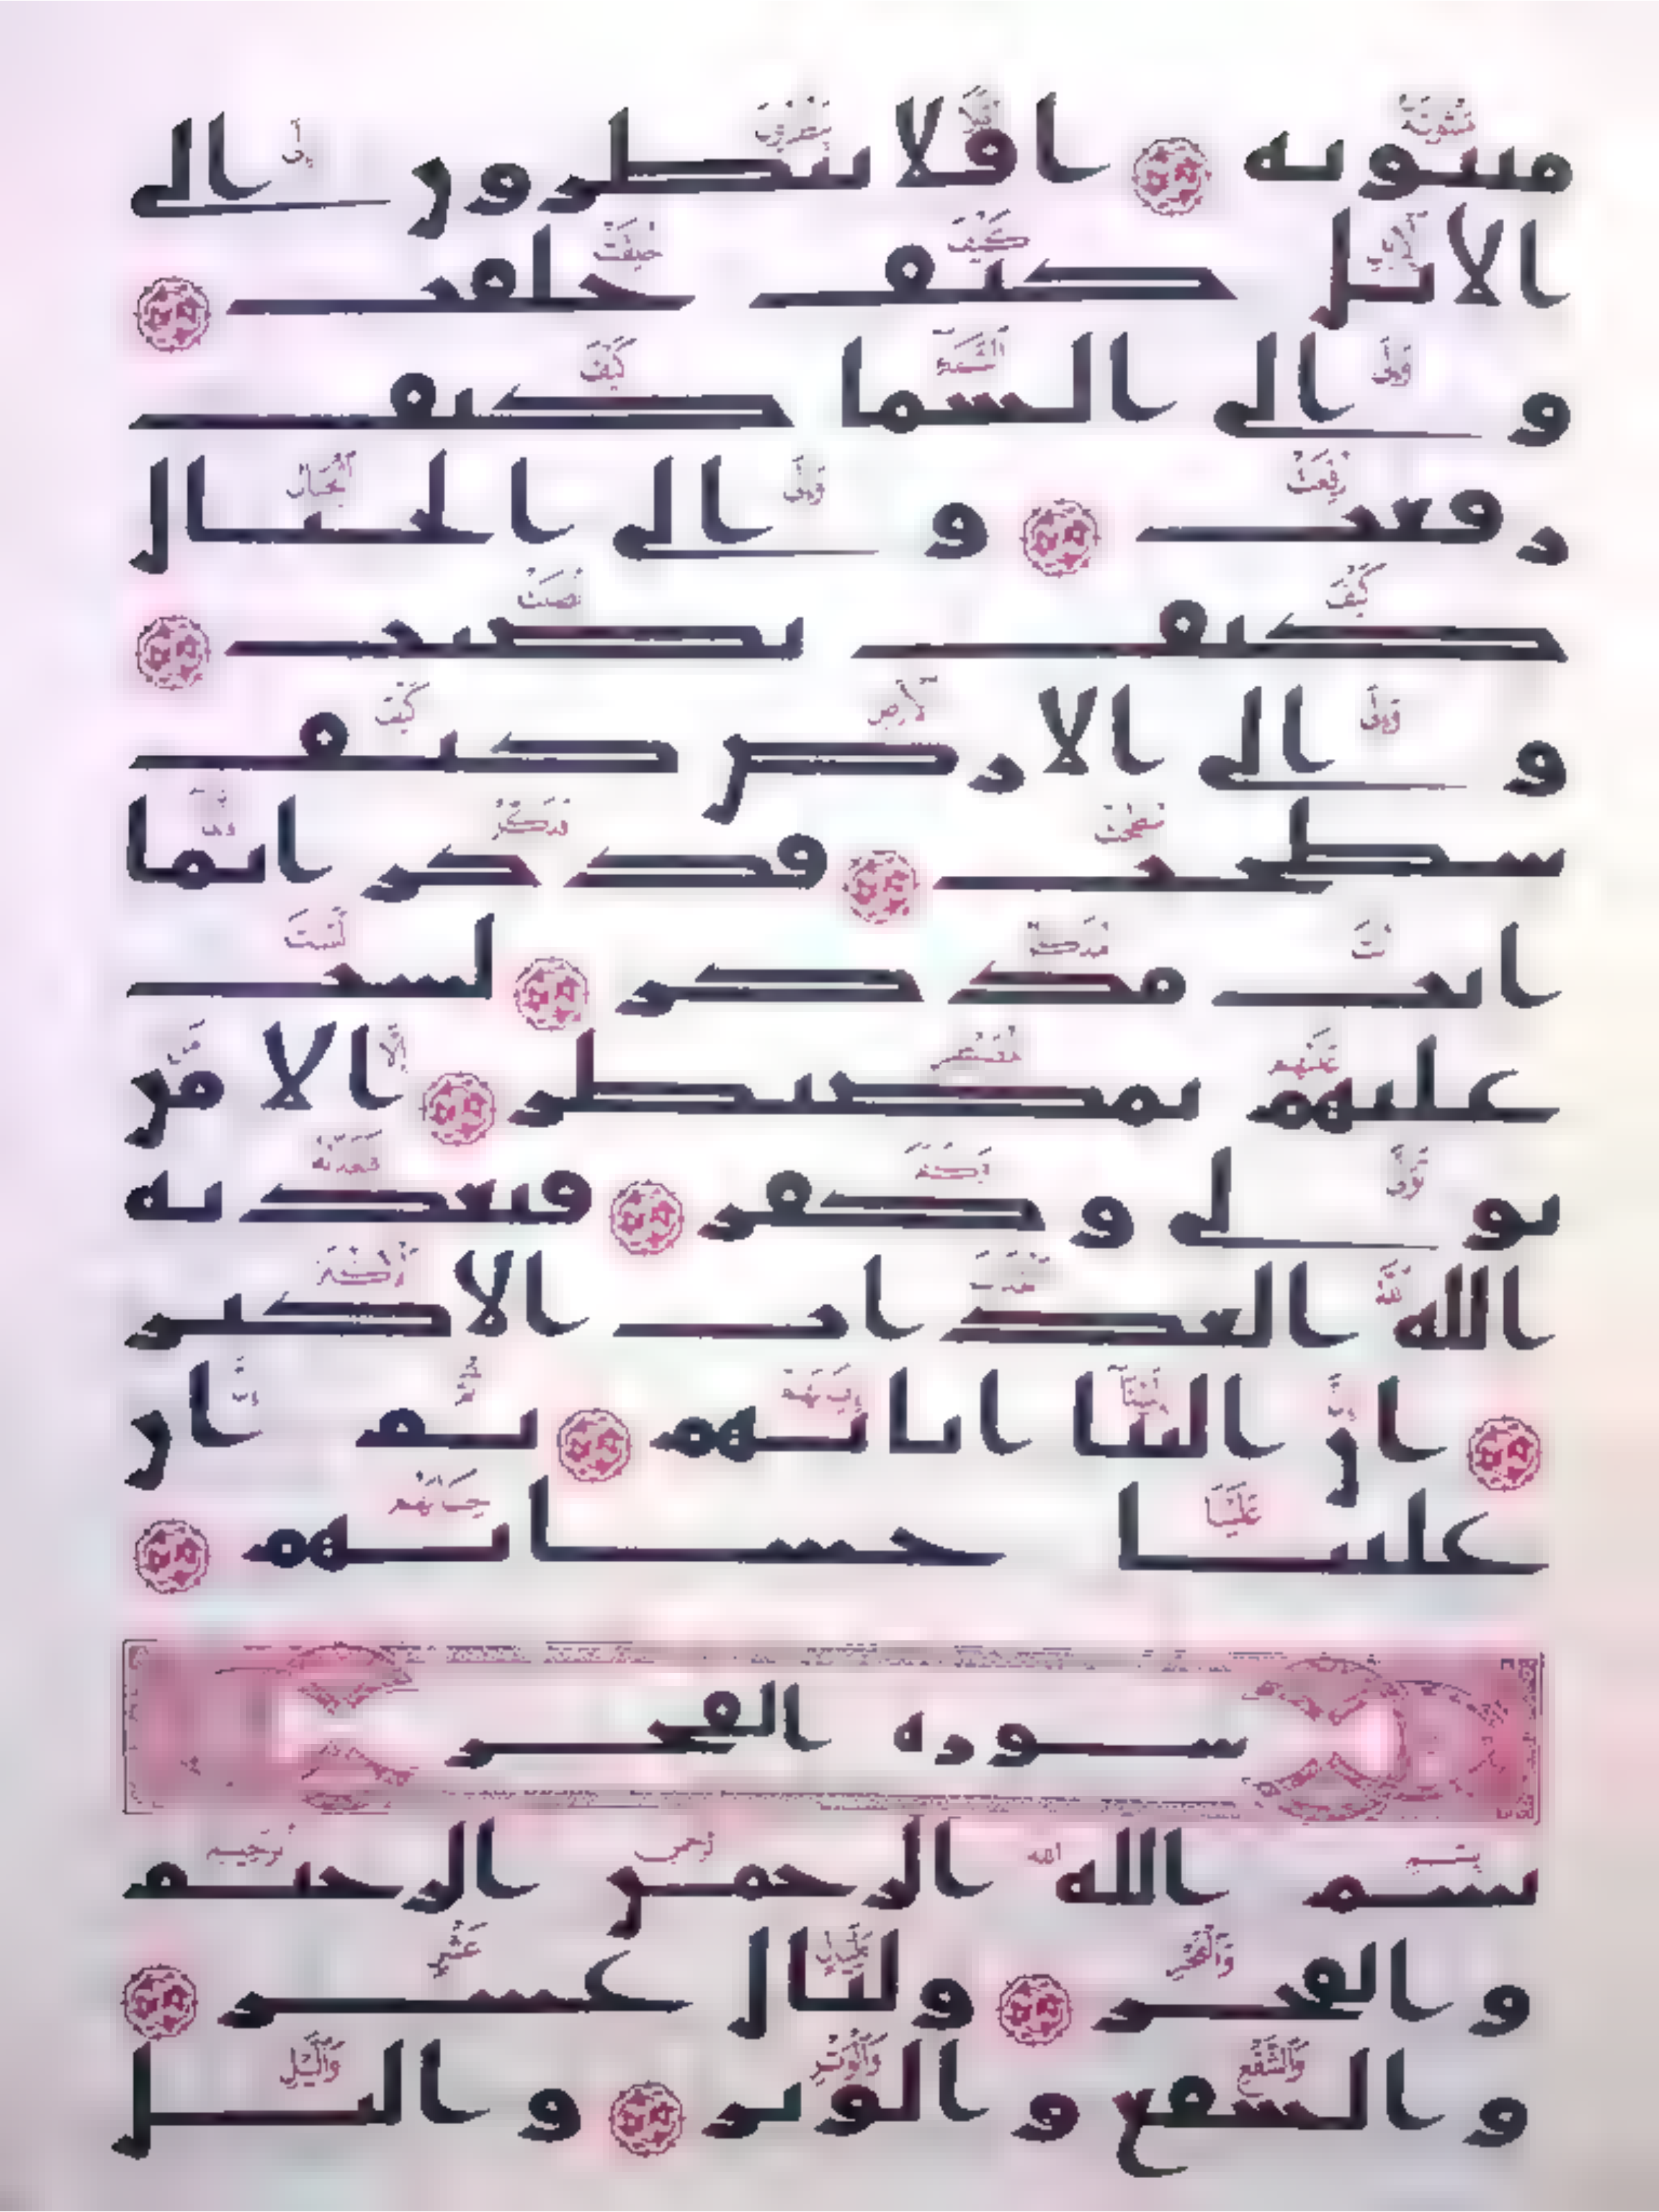 مبثوثة افلا ينظرون الى
الابل كيف خلقت
و الى السما كيف
رفعت و الى الجبال
كيف نصبت
و الى الارض كيف
سطحت فذكر انما
انت مذكر لست
عليهم بمصيطر الا من
تولى و كفر فيعذبه
الله العذاب الاكبر
ان الينا ايابهم ثم ان
علينا حسابهم
سورة الفجر
بسم الله الرحمن الرحيم
و الفجر وليال عشر
و الشفع و الوتر و اليل